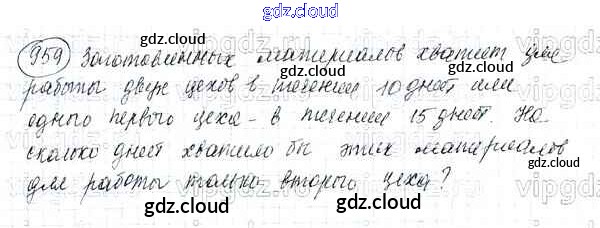 gdz.cloud
959 Заготовленных материалов хватит для
работы двух цехов в течении 10 дней или
одного первого цеха - в течении 15 дней. На
сколько дней хватило бы этих материалов
для работы только второго цеха?
gdz.cloud gdz.cloud
gdz.cloud gdz.cloud
gdz.cloud gdz.cloud
gdz.cloud